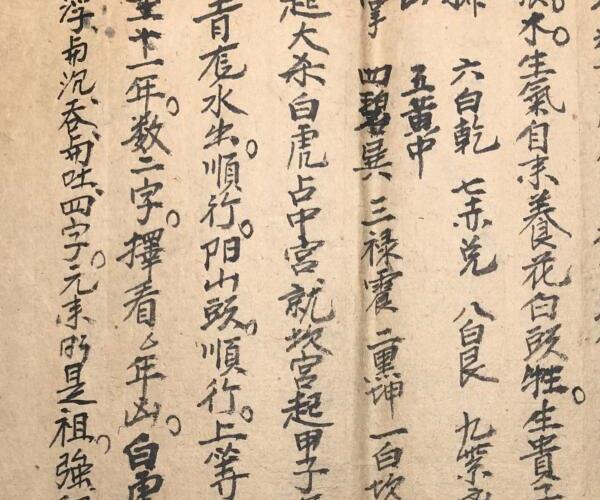 水。生氣自来養花白頭牲。生貴子
六白乾 七赤兑 八白艮 九紫
五黄中
掌 四碧巽 三禄震 二黒坤 一白坎
起大杀白虎占中宮就坎宮起甲子
青龍水生。順行。阳山頭。順行。上等
十一年。数二字。擇看年山。白虎
浮与沉、吞与吐、四字。元来是祖。強